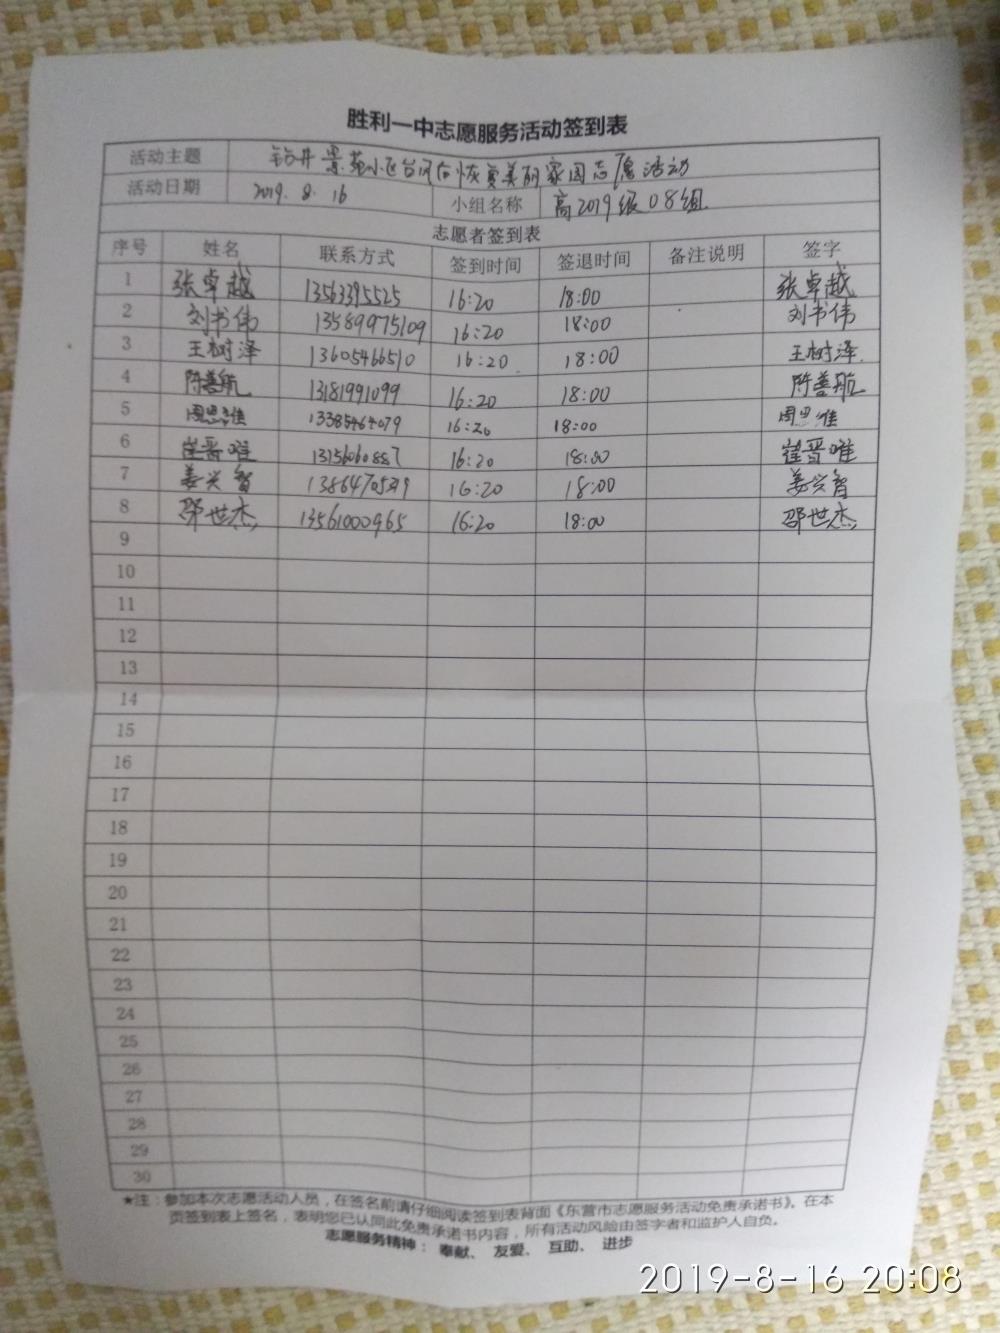 胜利一中志愿服务活动签到表
活动主题 钻井景苑小区台风后恢复美丽家园志愿活动
活动日期 2019.8.16 小组名称 高2019级08组
志愿者签到表
序号 姓名 联系方式 签到时间 签退时间 备注说明 签字
1 张卓越 13563395525 16:20 18:00 张卓越
2 刘书伟 13589975109 16:20 18:00 刘书伟
3 王树泽 13605466510 16:20 18:00 王树泽
4 陈善航 13181991099 16:20 18:00 陈善航
5 周思维 13385464079 16:20 18:00 周思维
6 崔晋唯 13156060887 16:20 18:00 崔晋唯
7 姜兴智 16:20 18:00 姜兴智
8 邵世杰 13561000965 16:20 18:00 邵世杰
9
10
11
12
13
14
15
16
17
18
19
20
21
22
23
24
25
26
27
28
29
30
★注：参加本次志愿活动人员，在签名前请仔细阅读签到表背面《东营市志愿服务活动免责承诺书》。在本
页签到表上签名，表明您已认同此免责承诺书内容，所有活动风险由签字者和监护人自负。
志愿服务精神： 奉献、 友爱、 互助、 进步
2019-8-16 20:08